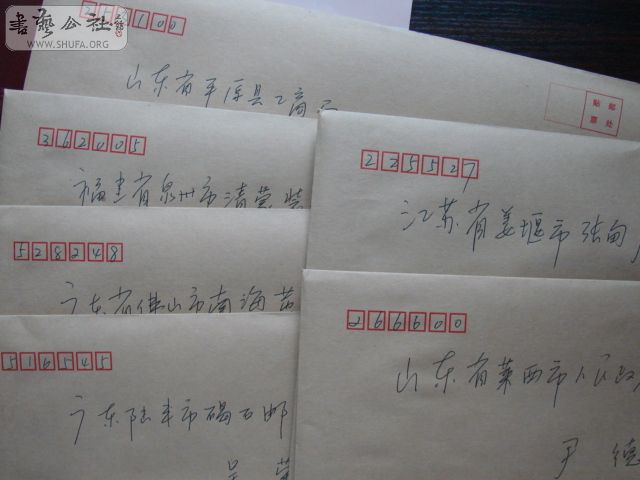 書藝公社
WWW.SHUFA.ORG
253100
山东省平原县工商局
邮票
贴处
362005
福建省泉州市清蒙
225527
江苏省姜堰市张甸
528248
广东省佛山市南海
266600
山东省莱西市人民政
尹 德
516545
广东陆丰市碣石邮
吴